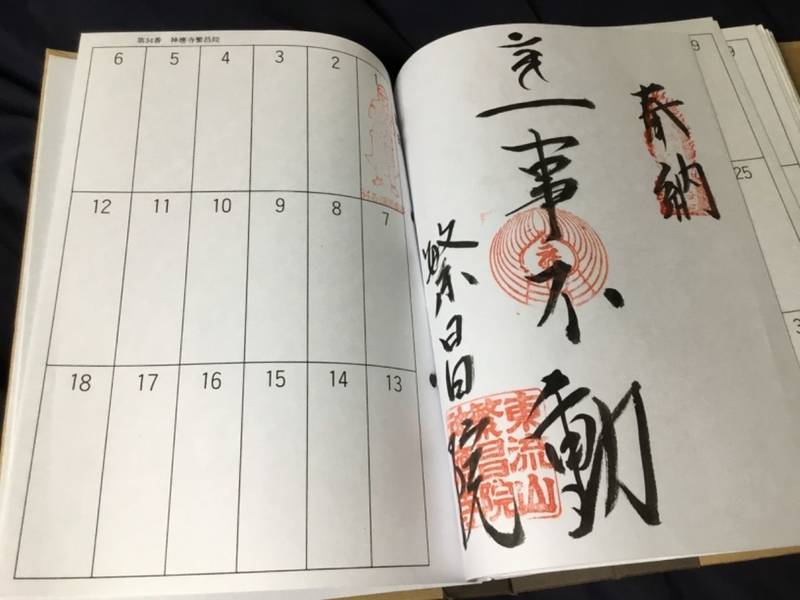 第34番 神應寺繁昌院
6 5 4 3 2 1
12 11 10 9 8 7
18 17 16 15 14 13
奉納
一事不動
繁昌院
東流山
繁昌院
9
9
25